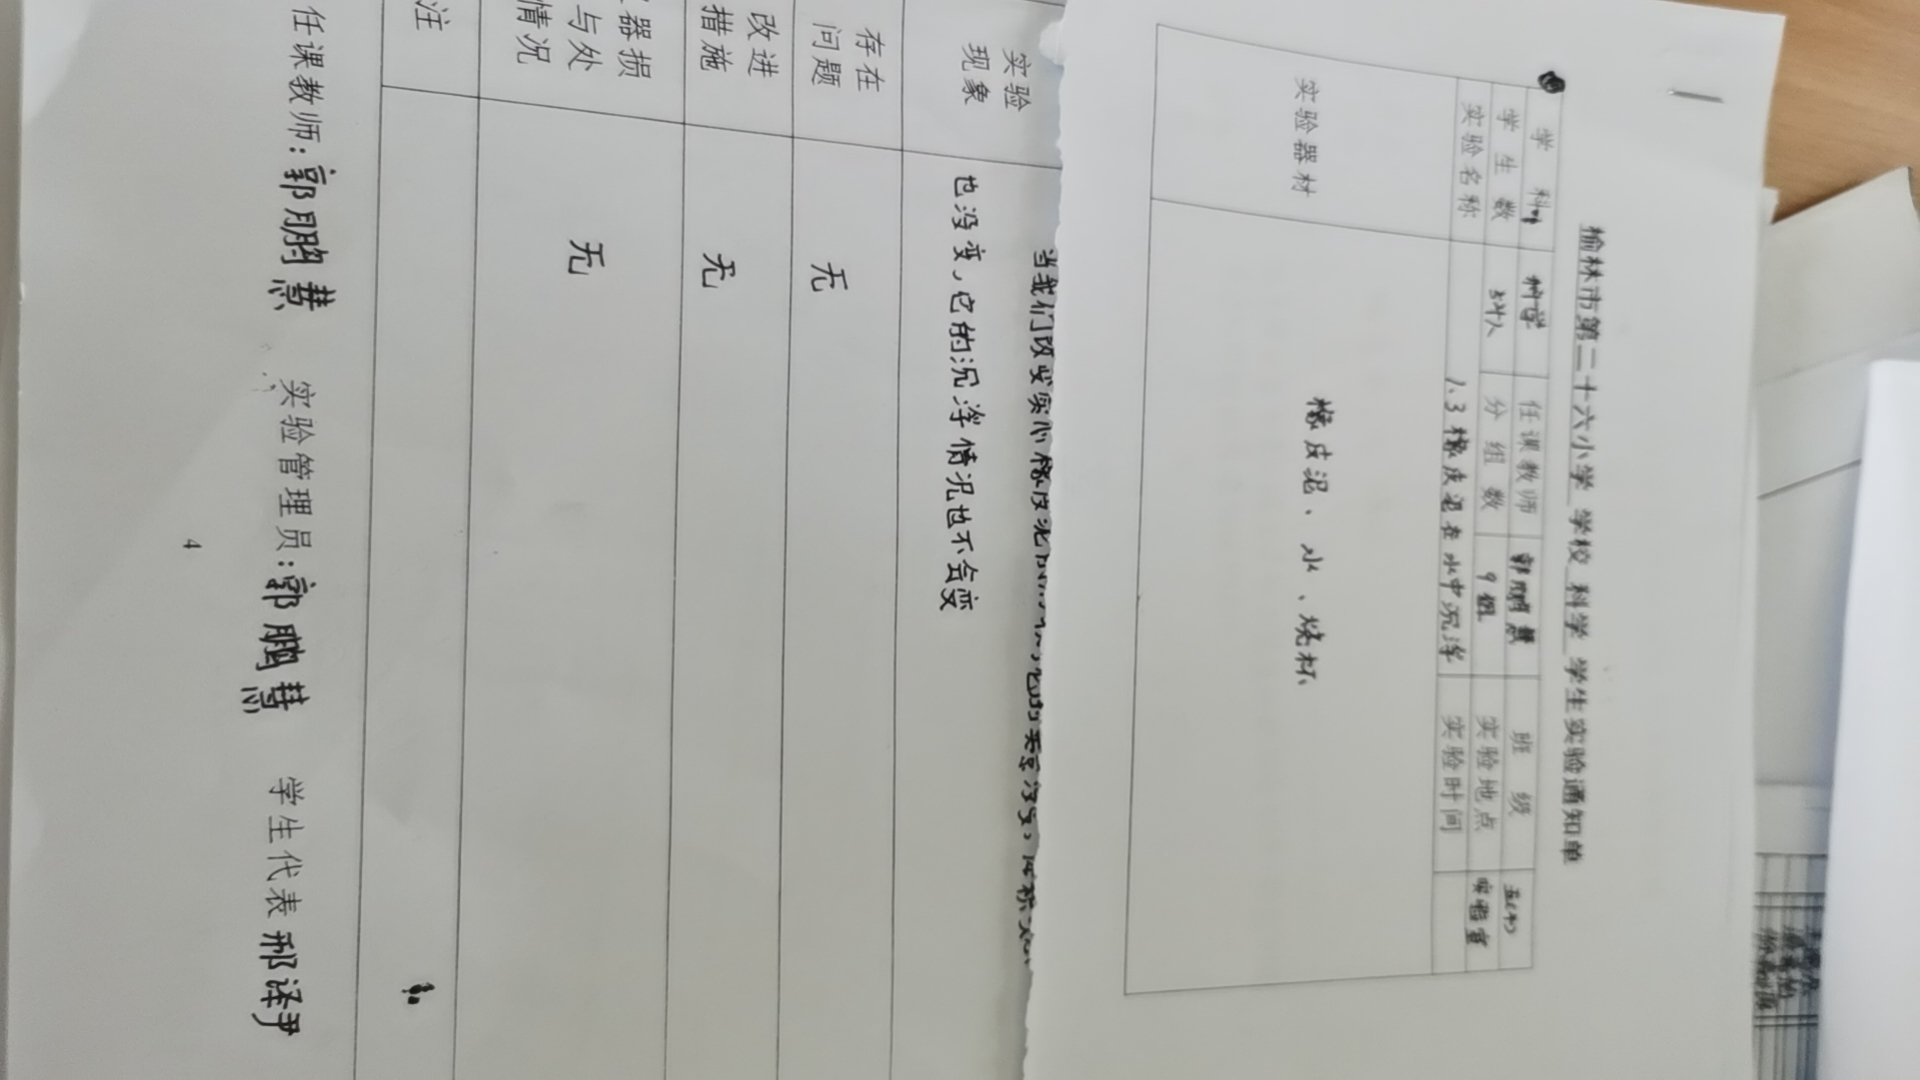 榆林市第二十六小学 学校 科学 学生实验通知单
学 科 科学 任课教师 郭鹏慧 班 级
学 生 数 54人 分 组 数 9组 实验地点 实验室
实验名称 1.3橡皮泥在水中沉浮 实验时间
实验器材 橡皮泥、水、烧杯、
实验
现象
当我们改变实心橡皮泥
也没变,它的沉浮情况也不会变
存在
问题
无
改进
措施
无
器损
与处
情况
无
注
任课教师:郭鹏慧 实验管理员:郭鹏慧 学生代表 邢泽尹
4